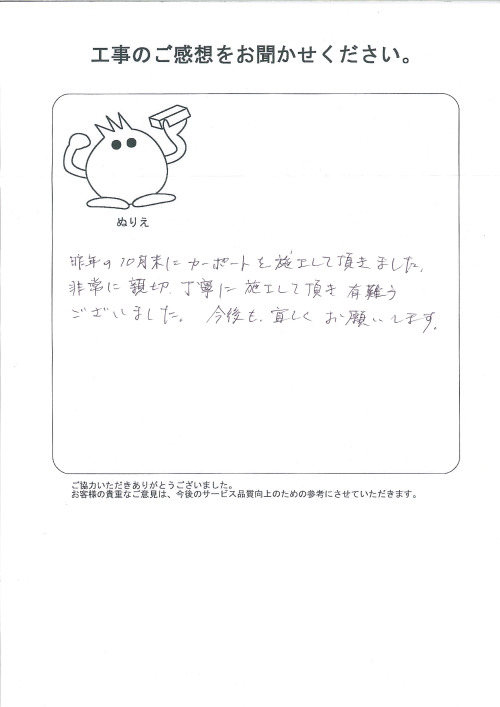 工事のご感想をお聞かせください。
ぬりえ
昨年の10月末にカーポートを施工して頂きました。
非常に親切、丁寧に施工して頂き有難う
ございました。 今後も、宜しくお願いします。
ご協力いただきありがとうございました。
お客様の貴重なご意見は、今後のサービス品質向上のための参考にさせていただきます。